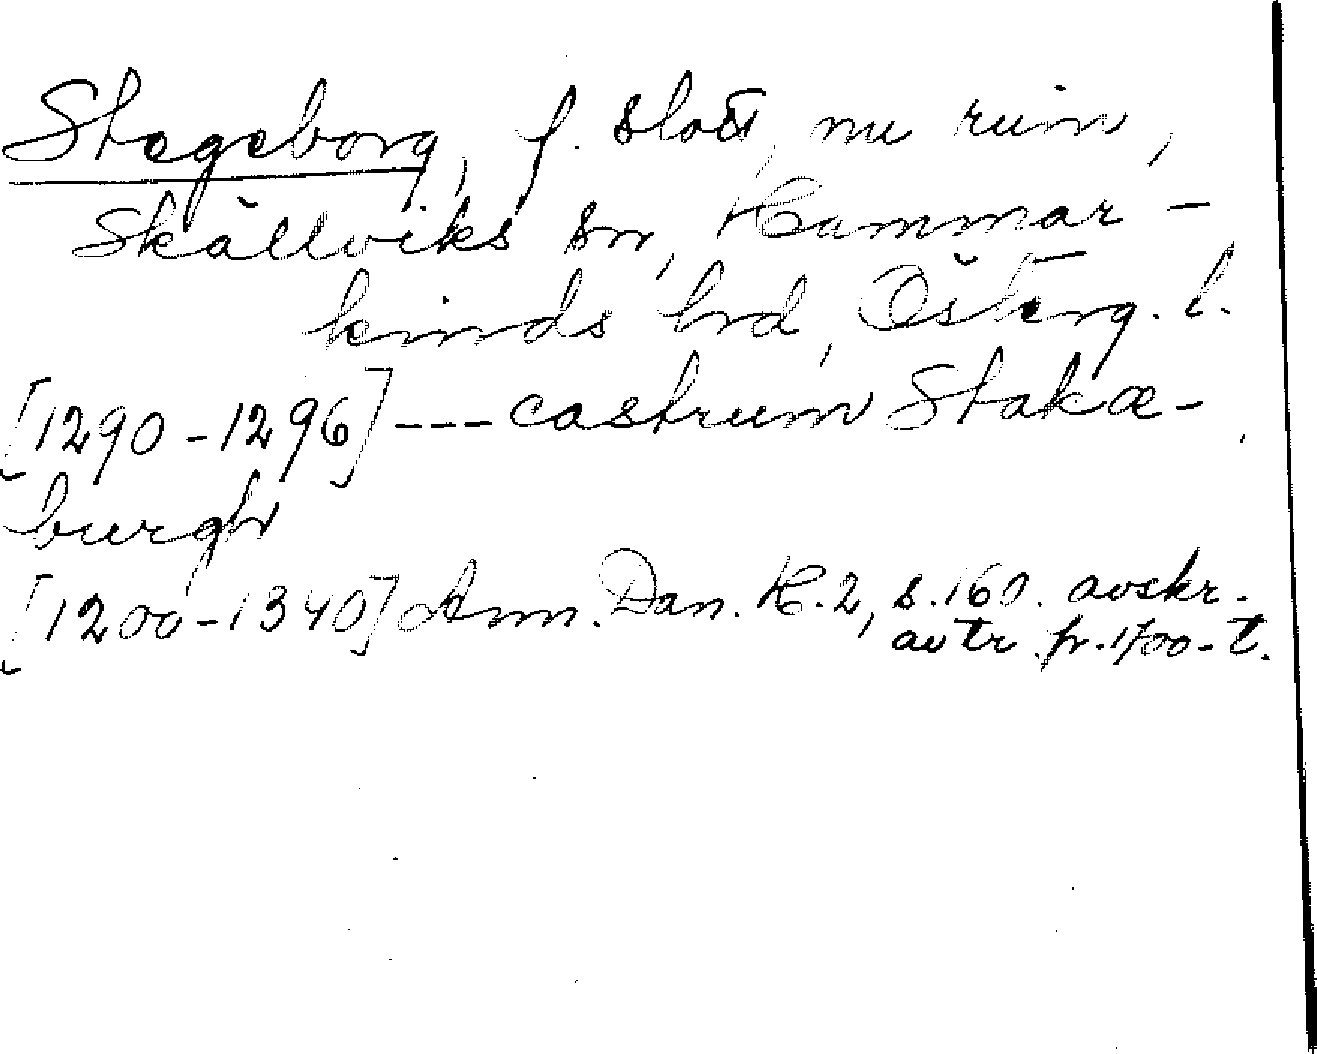 Stegeborg, f. slott, nu ruin,
Skällviks sn, Hammar-
kinds hd, Österg. l.
[1290-1296] --- castrum Stakæ-
burgh
[1200-1340] Ann. Dan. K. 2, s. 160. avskr.
av tr. fr. 1700-t.